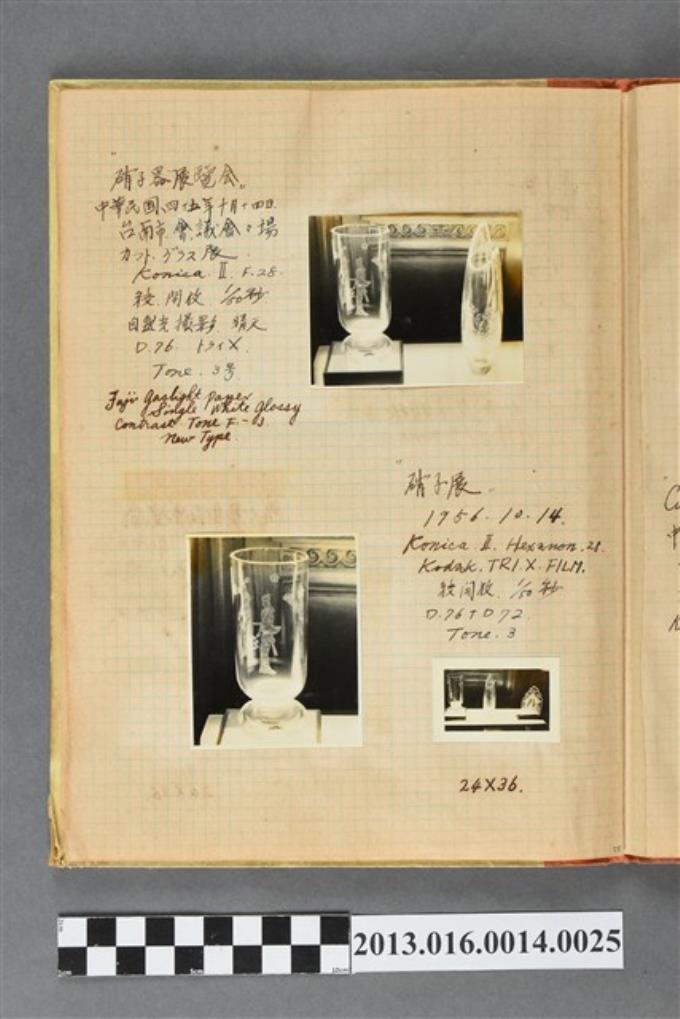 "硝子器展覽会"
中華民国四十五年十月十四日
台南市會議会々場
カットグラス展.
Konica. II. F.28.
絞.開放. 1/50秒
自然光撮影. 晴天
D.76. トライX.
Tone. 3号
Fuji gaslight paper
Single White Glossy
Contrast Tone F.-03.
New Type.
"硝子展"
1956.10.14.
Konica. II. Hexanon.28.
Kodak. TRI.X.FILM.
絞開放. 1/50秒
D.76+D72.
Tone. 3
24X36.
2cm
5cm
10cm
2013.016.0014.0025